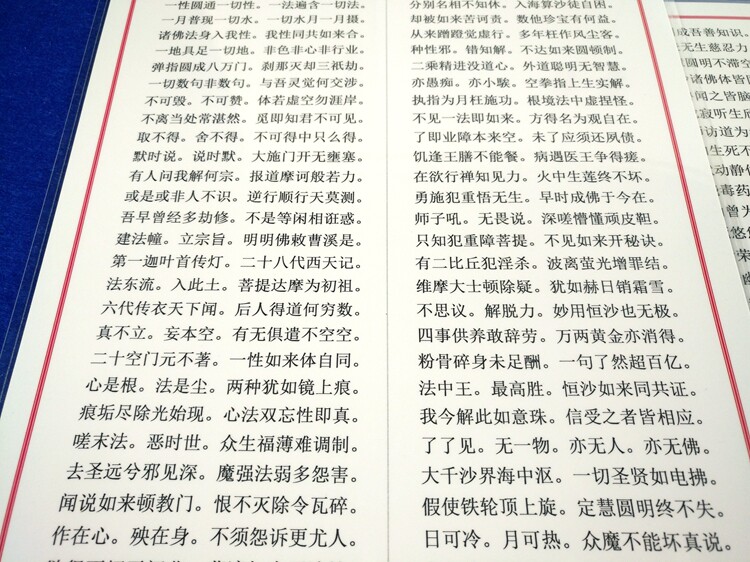 一性圆通一切性。一法遍含一切法。
一月普现一切水。一切水月一月摄。
诸佛法身入我性。我性同共如来合。
一地具足一切地。非色非心非行业。
弹指圆成八万门。刹那灭却三祇劫。
一切数句非数句。与吾灵觉何交涉。
不可毁。不可赞。体若虚空勿涯岸。
不离当处常湛然。觅即知君不可见。
取不得。舍不得。不可得中只么得。
默时说。说时默。大施门开无壅塞。
有人问我解何宗。报道摩诃般若力。
或是或非人不识。逆行顺行天莫测。
吾早曾经多劫修。不是等闲相诳惑。
建法幢。立宗旨。明明佛敕曹溪是。
第一迦叶首传灯。二十八代西天记。
法东流。入此土。菩提达摩为初祖。
六代传衣天下闻。后人得道何穷数。
真不立。妄本空。有无俱遣不空空。
二十空门元不著。一性如来体自同。
心是根。法是尘。两种犹如镜上痕。
痕垢尽除光始现。心法双忘性即真。
嗟末法。恶时世。众生福薄难调制。
去圣远兮邪见深。魔强法弱多怨害。
闻说如来顿教门。恨不灭除令瓦碎。
作在心。殃在身。不须怨诉更尤人。
分别名相不知休。入海算沙徒自困。
却被如来苦诃责。数他珍宝有何益。
从来蹭蹬觉虚行。多年枉作风尘客。
种性邪。错知解。不达如来圆顿制。
二乘精进没道心。外道聪明无智慧。
亦愚痴。亦小騃。空拳指上生实解。
执指为月枉施功。根境法中虚捏怪。
不见一法即如来。方得名为观自在。
了即业障本来空。未了应须还夙债。
饥逢王膳不能餐。病遇医王争得瘥。
在欲行禅知见力。火中生莲终不坏。
勇施犯重悟无生。早时成佛于今在。
师子吼。无畏说。深嗟懵懂顽皮靼。
只知犯重障菩提。不见如来开秘诀。
有二比丘犯淫杀。波离萤光增罪结。
维摩大士顿除疑。犹如赫日销霜雪。
不思议。解脱力。妙用恒沙也无极。
四事供养敢辞劳。万两黄金亦消得。
粉骨碎身未足酬。一句了然超百亿。
法中王。最高胜。恒沙如来同共证。
我今解此如意珠。信受之者皆相应。
了了见。无一物。亦无人。亦无佛。
大千沙界海中沤。一切圣贤如电拂。
假使铁轮顶上旋。定慧圆明终不失。
日可冷。月可热。众魔不能坏真说。
成吾善知识。
无生慈忍力
圆明不滞空
诸佛体皆
闻之皆脑
寂听生欣
访道为
生死不
毒药